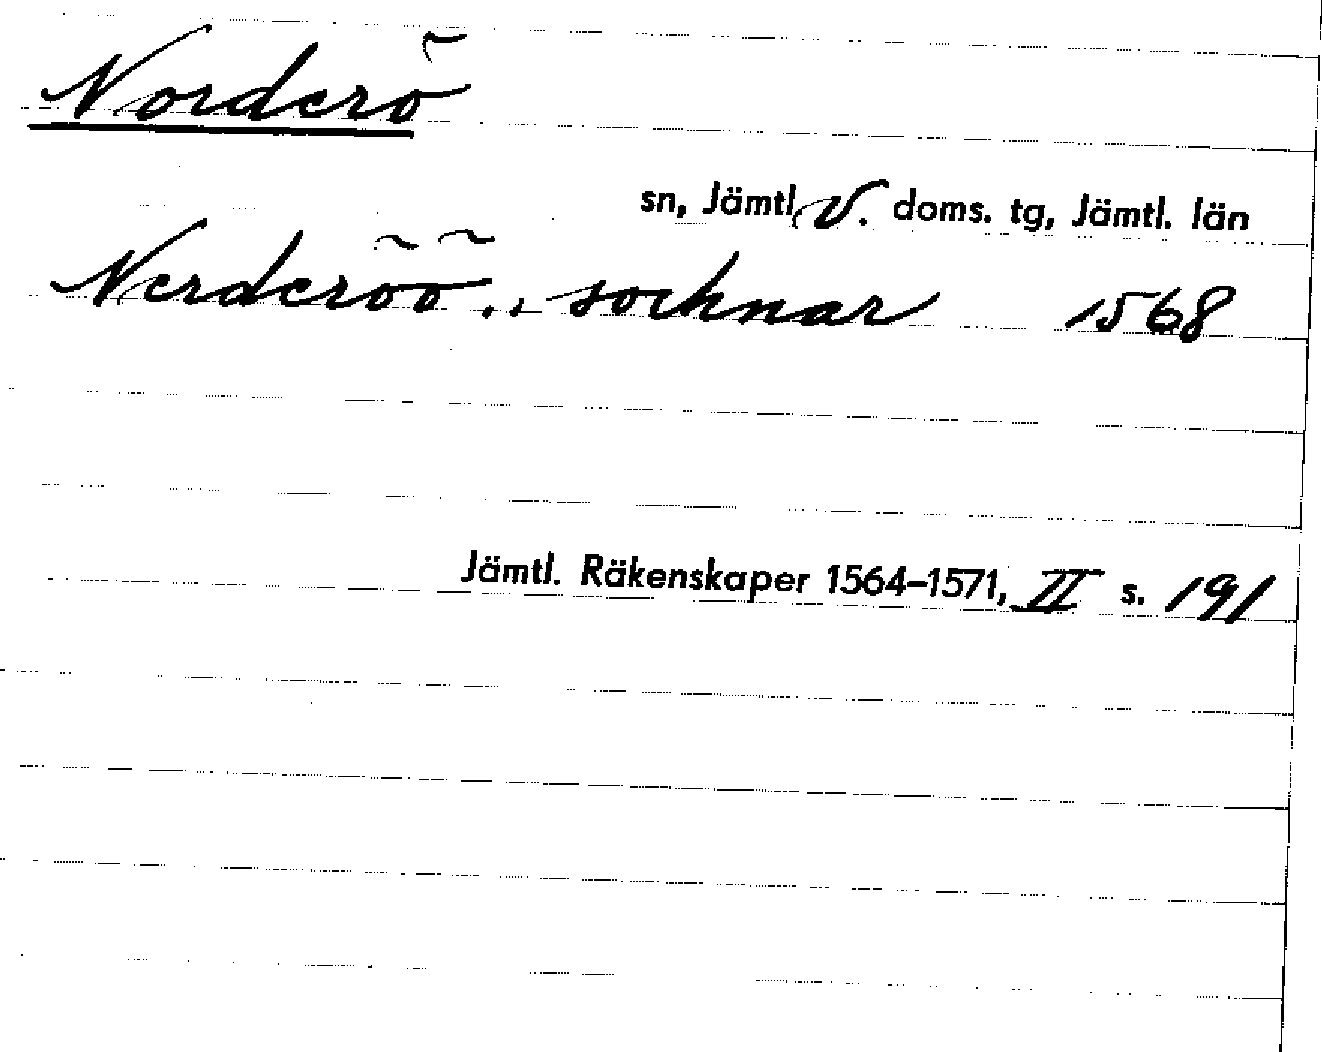 Norderö
sn, Jämtl. V. doms. tg, Jämtl. län
Nerderöö .. socknar 1568
Jämtl. Räkenskaper 1564–1571, II s. 191